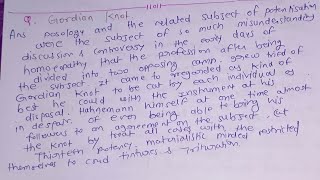 Q. Gordion Knot
Ans posology and the related subject of potentisation
were the subject of so much misunderstanding
discussion & controvasy in the early days of
homoeopathy that the profession after being
divided into two opposing camp. grew tired of
the subject. It came to reegarded as kind of
Gordian Knot to be cut by each individual as
best he could with the instrument at his
disposal. Hahnemann himself at one time almost
in despair of even being able to bring his
followers to an agreement on the subject. cut
the knot by treat all cases with the
Thirtieth Potency, materialistic minded restricted
themselves to crud tinturs & Trituration